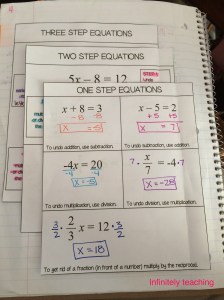 THREE STEP EQUATIONS
TWO STEP EQUATIONS
5x − 8 = 12
ONE STEP EQUATIONS
x + 8 = 3
− 8 − 8
x = −5
To undo addition, use subtraction.
x − 5 = 2
+5 +5
x = 7
To undo subtraction, use addition.
-4x = 20
-4 -4
x = -5
To undo multiplication, use division.
7 · x/7 = -4 · 7
x = -28
To undo division, use multiplication.
3/2 · 2/3 x = 12 · 3/2
x = 18
To get rid of a fraction (in front of a number) multiply by the reciprocal.
Infinitely teaching